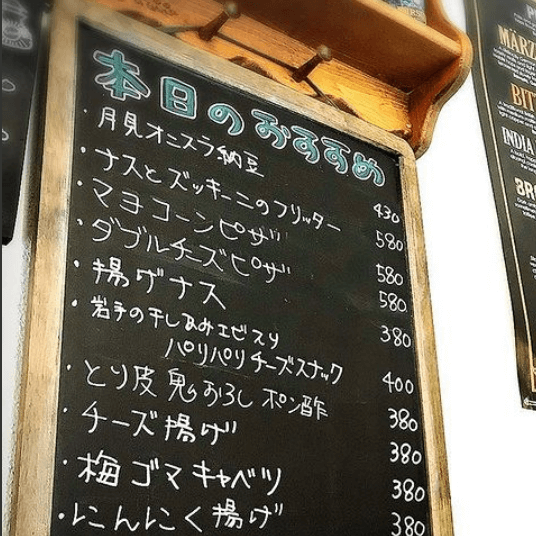 本日のおすすめ
・月見オニスラ納豆 430
・ナスとズッキーニのフリッター 580
・マヨコーンピザ 580
・ダブルチーズピザ 580
・揚げナス 380
・岩手の干しあみエビスリ
パリパリチーズスナック 400
・とり皮鬼おろしポン酢 380
・チーズ揚げ 380
・梅ゴマキャベツ 380
・にんにく揚げ 380
MÄRZ
BIT
INDIA
BR